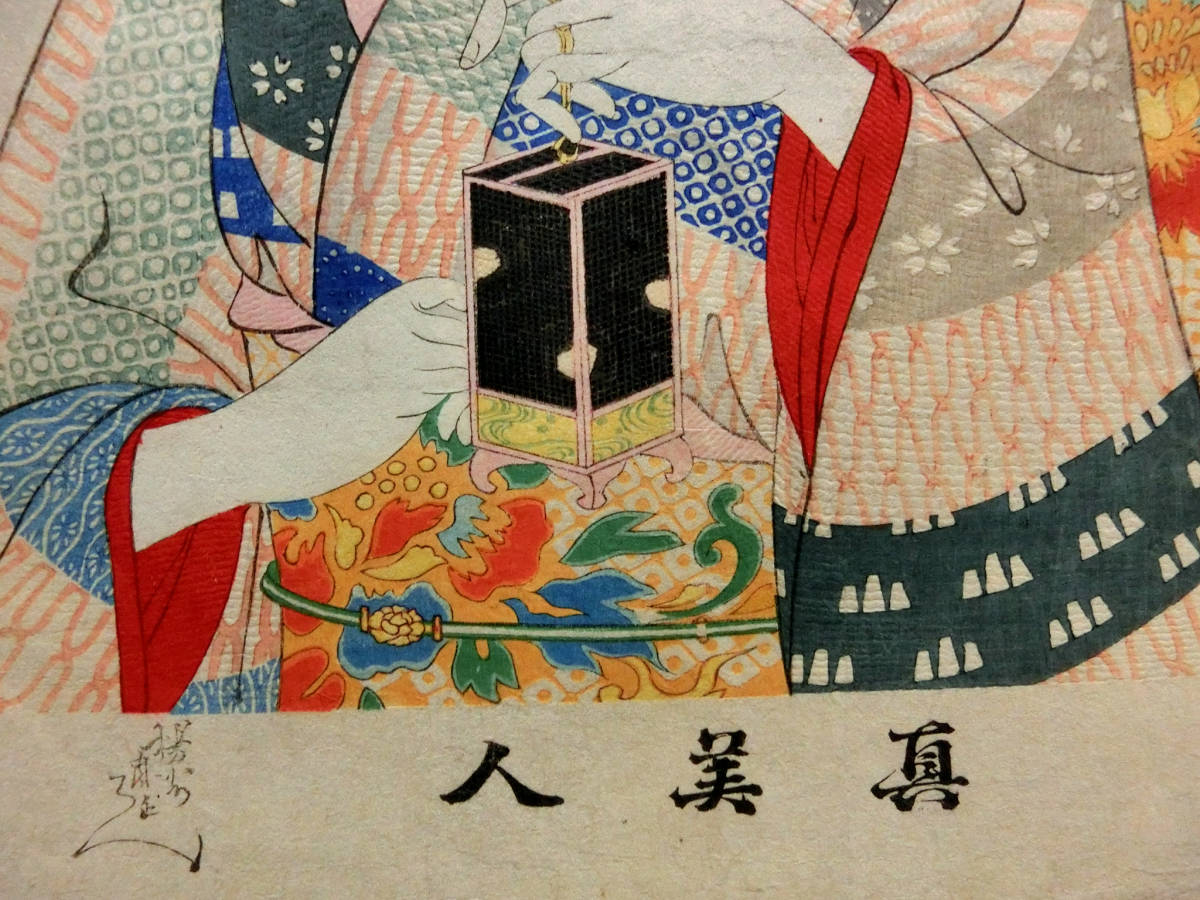 真美人
楊洲周延